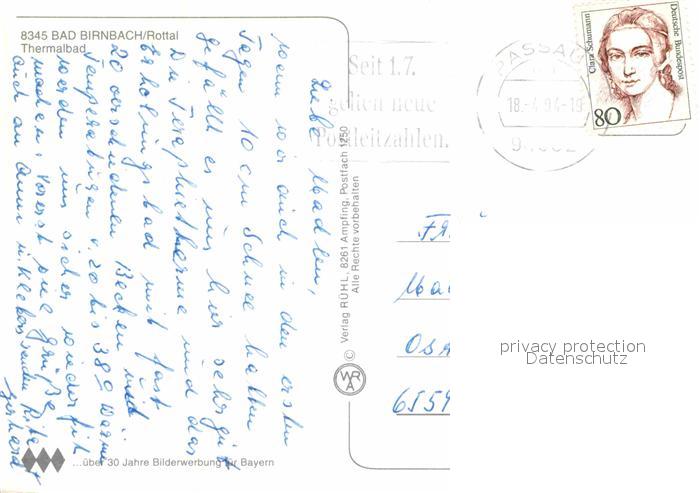 8345 BAD BIRNBACH/Rottal
Thermalbad
Liebe Madlein,
wenn wir auch in den ersten
Tagen 10 cm Schnee hatten
gefällt es uns hier sehr gut
Die Teraphietherme und das
Erholungsbad mit fast
20 verschiedenen Becken mit
Temperaturen v. 20 bis 38° Wärme
werden uns sicher wieder fit
machen. Vorerst viele Grüße
auch an Anni u. senden Rita +
Gerhard
© Verlag RÜHL, 8261 Ampfing, Postfach 1250
Alle Rechte vorbehalten
WRA
...über 30 Jahre Bilderwerbung für Bayern
Seit 1.7.
gelten neue
Postleitzahlen.
PASSAU
18.-4.94-19
Clara Schumann
Deutsche Bundespost
80
privacy protection
Datenschutz